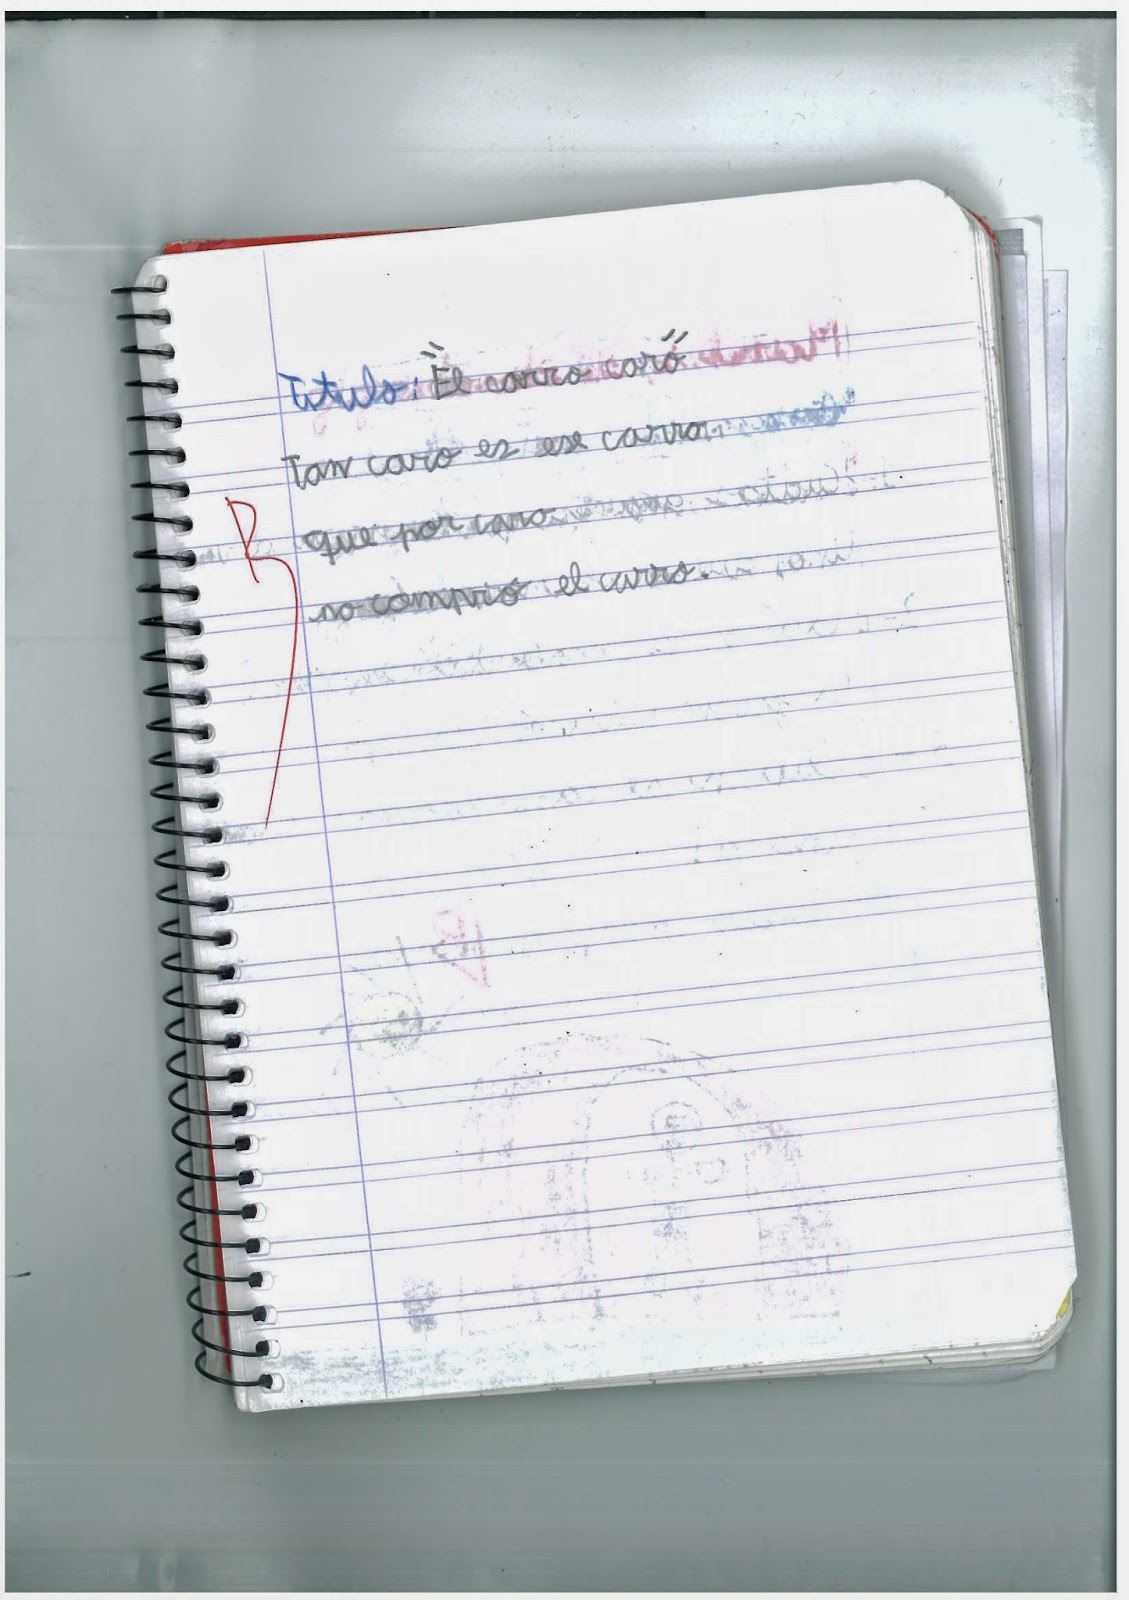 Titulo: "El carro caro"
Tan caro es ese carro,
que por caro
no compró el carro.
B